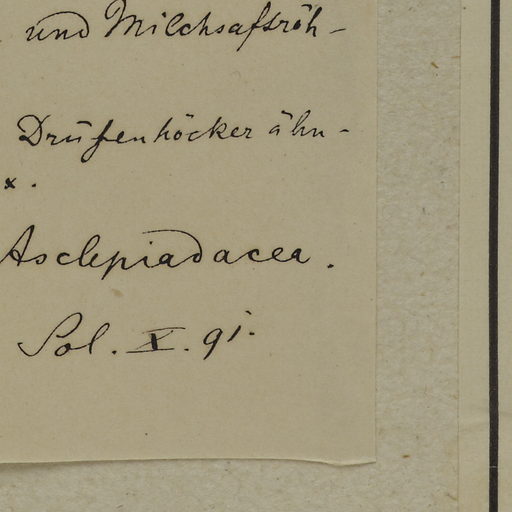 und Milchsafsröh-
Drüsenhöcker ähn-
x.
Asclepiadacea.
Sol. X. 91.